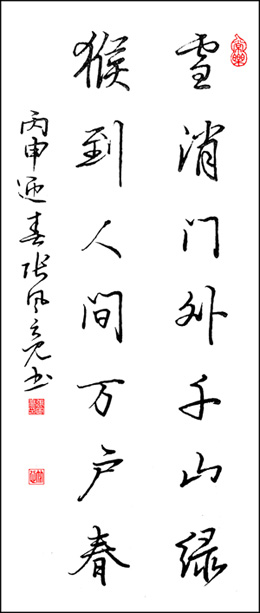 雪消门外千山绿
猴到人间万户春
丙申迎春张风亮书